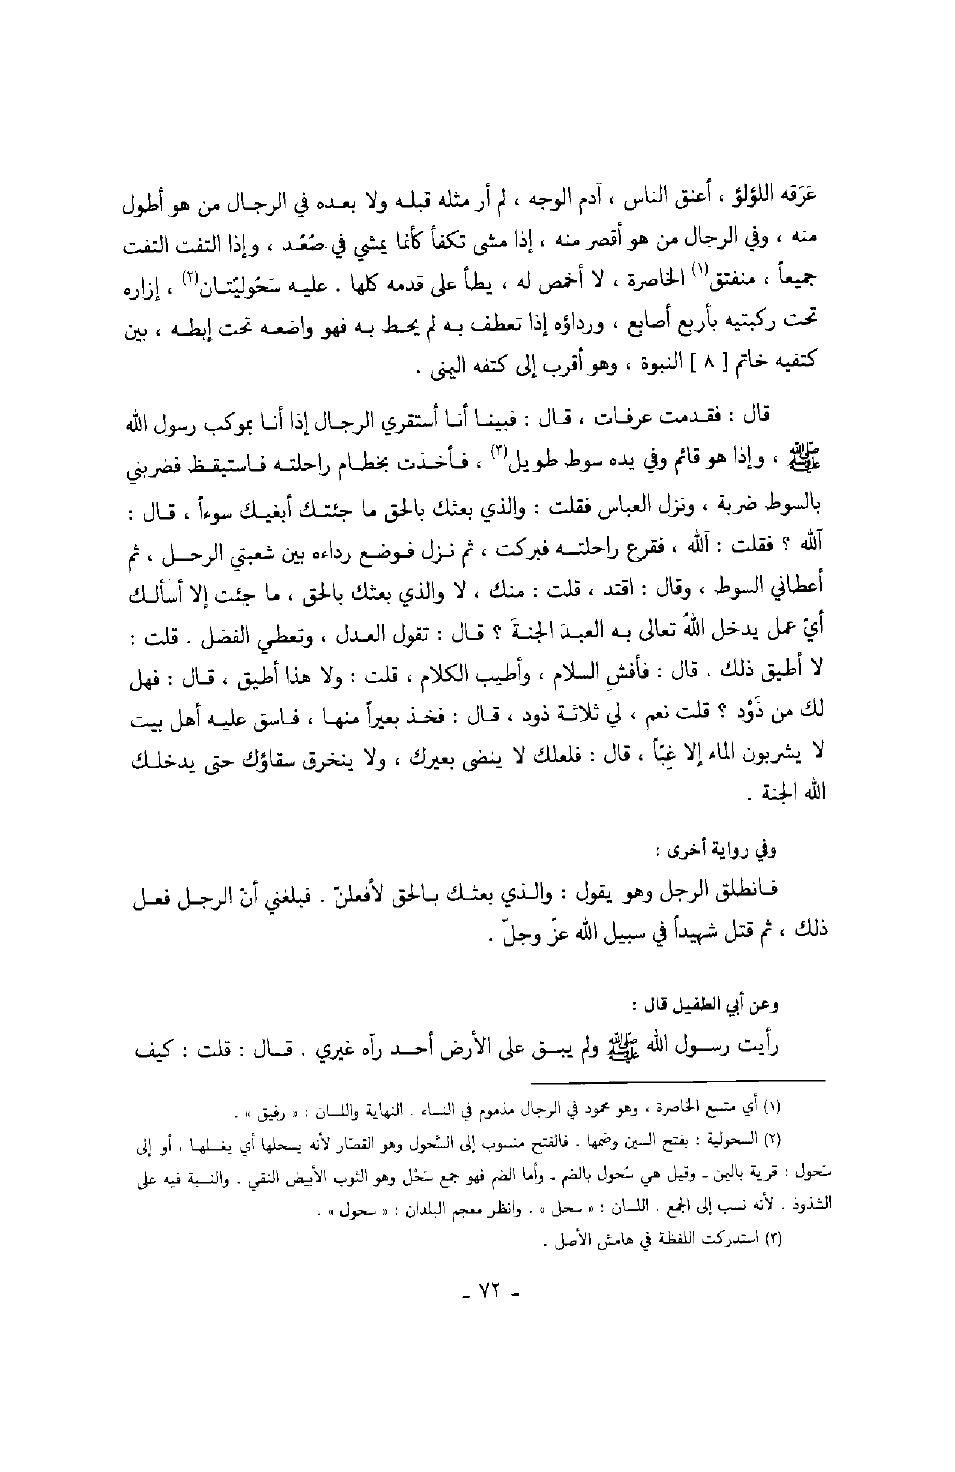 عَرَقه اللؤلؤ ، أعنق الناس ، آدم الوجه ، لم أر مثله قبلـه ولا بعـده في الرجـال من هو أطول
منه ، وفي الرجال من هو أقصر منه ، إذا مشى تكفأ كأنما يمشي في صُعُد ، وإذا التفت التفت
جميعاً ، منفتق(١) الخاصرة ، لا أخمص له ، يطأ على قدمه كلها . عليـه سَحُوليّتـان(٢) ، إزاره
تحت ركبتيه بأربع أصابع ، ورداؤه إذا تعطف بـه لم يحـط بـه فهو واضعـه تحت إبطـه ، بين
كتفيه خاتم [ ٨ ] النبوة ، وهو أقرب إلى كتفه اليمنى .
قال : فقـدمت عرفـات ، قـال : فبينـا أنـا أستقري الرجـال إذا أنـا بموكب رسول الله
ﷺ ، وإذا هو قائم وفي يده سوط طويل(٣) ، فـأخـذت بخطـام راحلتـه فـاستيقـظ فضربني
بالسوط ضربة ، ونزل العباس فقلت : والذي بعثك بالحق ما جئتـك أبغيـك سوءاً ، قـال :
آلله ؟ فقلت : آلله ، فقرع راحلتـه فبركت ، ثم نـزل فـوضـع رداءه بين شعبتي الرحـل ، ثم
أعطاني السوط ، وقال : اقتد ، قلت : منك ، لا والذي بعثك بالحق ، ما جئت إلا أسألـك
أيّ عمل يدخل اللهُ تعالى بـه العبدَ الجنةَ ؟ قـال : تقول العـدل ، وتعطي الفضل . قلت :
لا أطيق ذلك . قال : فأفشِ السلام ، وأطيب الكلام ، قلت : ولا هذا أطيق ، قـال : فهل
لك من ذَوْد ؟ قلت نعم ، لي ثلاثـة ذود ، قـال : فخـذ بعيراً منهـا ، فـاسق عليـه أهل بيت
لا يشربون الماء إلا غِبّاً ، قال : فلعلك لا ينضى بعيرك ، ولا ينخرق سقاؤك حتى يدخلـك
الله الجنة .
وفي رواية أخرى :
فـانطلق الرجل وهو يقول : والـذي بعثـك بـالحق لأفعلنّ . فبلغني أنّ الرجـل فعـل
ذلك ، ثم قتل شهيداً في سبيل الله عزّ وجلّ .
وعن أبي الطفيل قال :
رأيت رسـول الله ﷺ ولم يبـق على الأرض أحـد رآه غيري . قـال : قلت : كيف
(١) أي متسع الخاصرة ، وهو محمود في الرجال مذموم في النساء . النهاية واللسان : « رفيق » .
(٢) السحولية : بفتح السين وضمها . فالفتح منسوب إلى السَّحول وهو القصّار لأنه يسحلها أي يغسلهـا ، أو إلى
سَحول : قرية باليمن ـ وقيل هي سُحول بالضم ـ وأما الضم فهو جمع سَحْل وهو الثوب الأبيض النقي . والنسبة فيه على
الشذوذ . لأنه نسب إلى الجمع . اللسان : « سحل » . وانظر معجم البلدان : « سحول » .
(٣) استدركت اللفظة في هامش الأصل .
ـ ٧٢ ـ